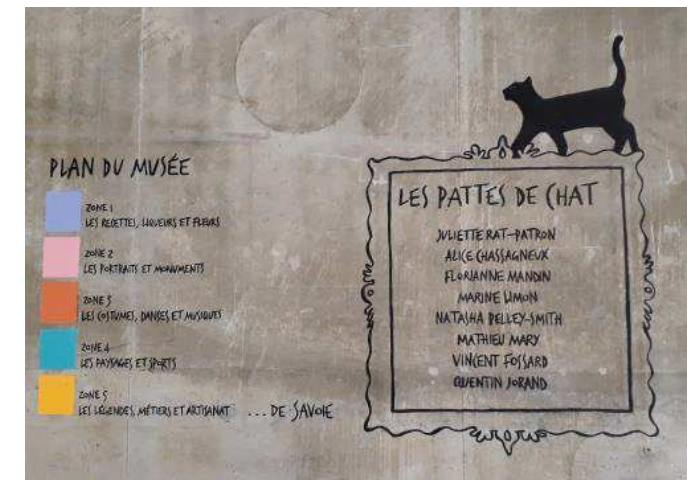 PLAN DU MUSÉE
ZONE 1
LES RECETTES, LIQUEURS ET FLEURS
ZONE 2
LES PORTRAITS ET MONUMENTS
ZONE 3
LES COSTUMES, DANSES ET MUSIQUES
ZONE 4
LES PAYSAGES ET SPORTS
ZONE 5
LES LÉGENDES, MÉTIERS ET ARTISANAT ...DE SAVOIE
LES PATTES DE CHAT
JULIETTE RAT-PATRON
ALICE CHASSAGNEUX
FLORIANNE MANDIN
MARINE LIMON
NATASHA PELLEY-SMITH
MATHIEU MARY
VINCENT FOSSARD
QUENTIN JORAND